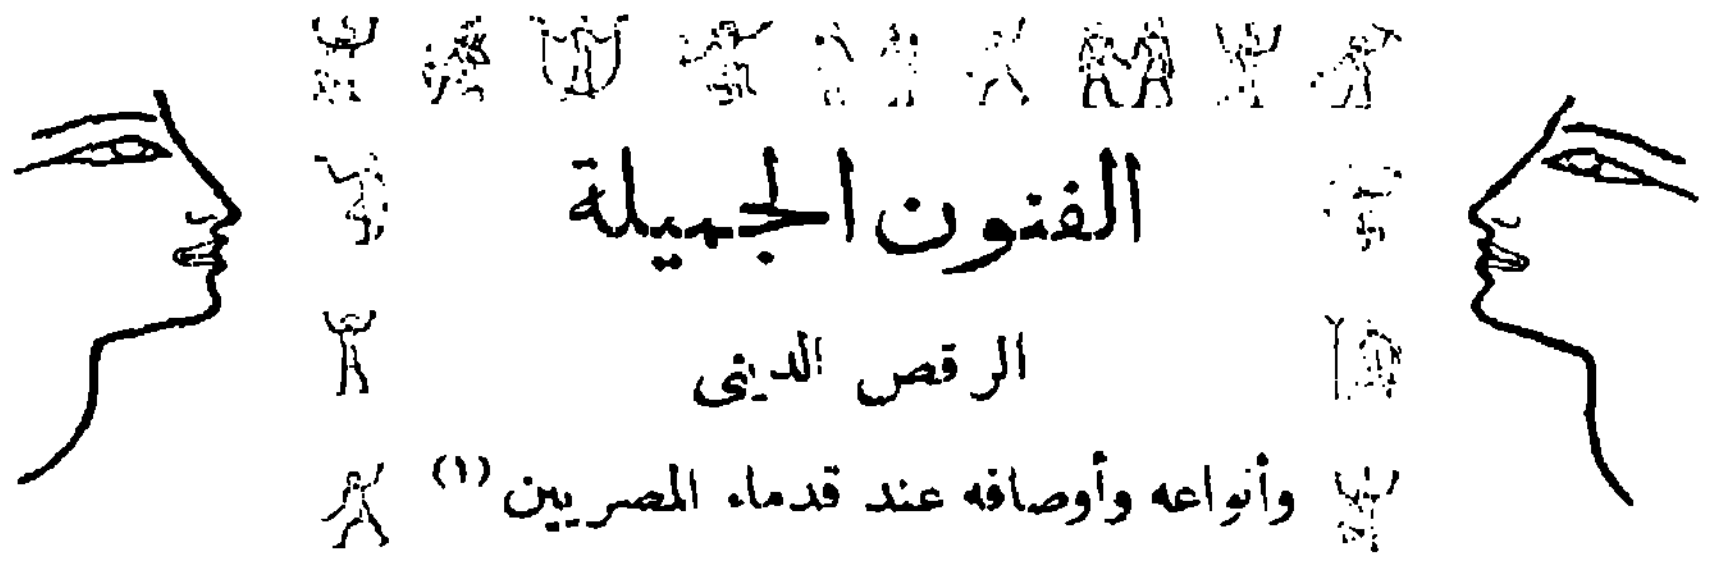 الفنون الجميلة
الرقص الدينى
وأنواعه وأوصافه عند قدماء المصريين (١)